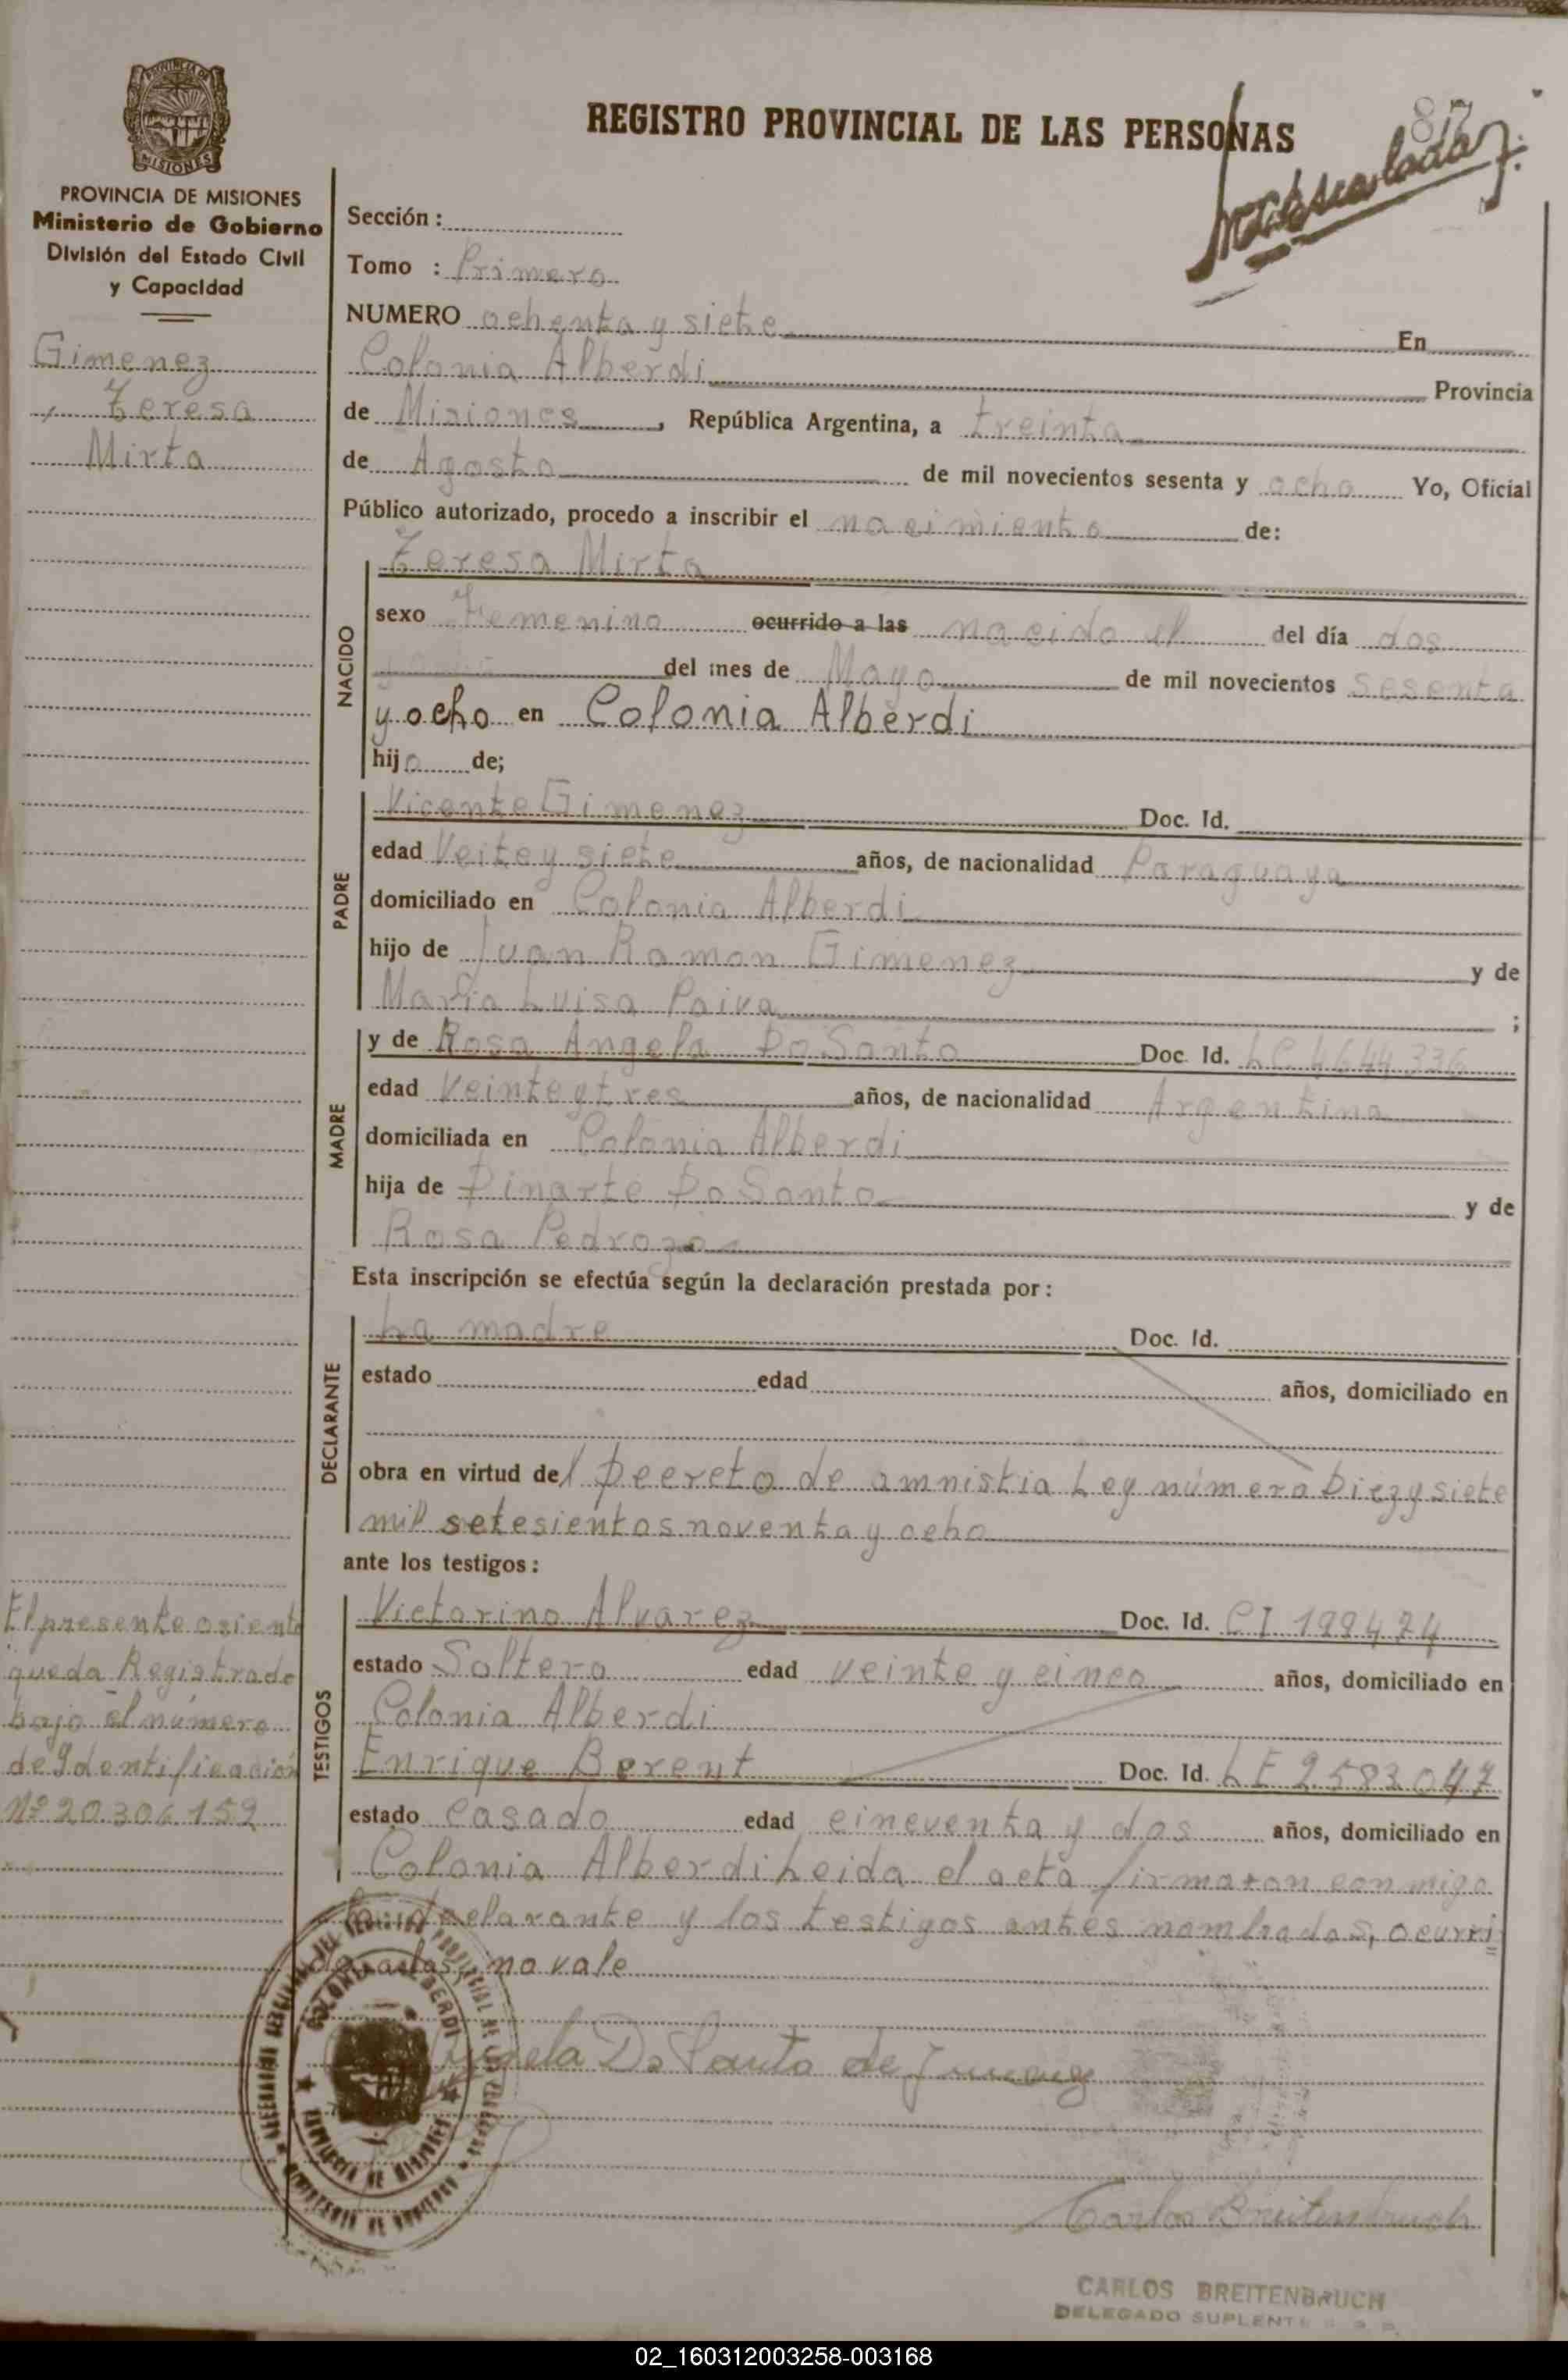 REGISTRO PROVINCIAL DE LAS PERSONAS
87
PROVINCIA DE
MISIONES
PROVINCIA DE MISIONES
Ministerio de Gobierno
División del Estado Civil
y Capacidad
Gimenez
, Teresa
Mirta
Sección :
Tomo : Primero
NUMERO ochenta y siete En
Colonia Alberdi Provincia
de Misiones, República Argentina, a treinta
de Agosto de mil novecientos sesenta y ocho Yo, Oficial
Público autorizado, procedo a inscribir el nacimiento de:
NACIDO
Teresa Mirta
sexo Femenino ocurrido a las nacido el del día dos
del mes de Mayo de mil novecientos sesenta
y ocho en Colonia Alberdi
hija de;
PADRE
Vicente Gimenez Doc. Id.
edad Veite y siete años, de nacionalidad Paraguaya
domiciliado en Colonia Alberdi
hijo de Juan Ramon Gimenez y de
Maria Luisa Paiva ;
MADRE
y de Rosa Angela Do Santo Doc. Id. LC 4644336
edad Veinte y tres años, de nacionalidad Argentina
domiciliada en Colonia Alberdi
hija de Dinarte Do Santo y de
Rosa Pedrozo
Esta inscripción se efectúa según la declaración prestada por :
DECLARANTE
La madre Doc. Id.
estado edad años, domiciliado en
obra en virtud del Decreto de amnistia Ley número Diez y siete
mil setesientos noventa y ocho
ante los testigos :
TESTIGOS
Victorino Alvarez Doc. Id. CI 199474
estado Soltero edad veinte y cinco años, domiciliado en
Colonia Alberdi
Enrique Berent Doc. Id. LE 2583047
estado casado edad cincuenta y dos años, domiciliado en
Colonia Alberdi Leida el acta firmaron conmigo
la declarante y los testigos antes nombrados, ocurri
do a las, no vale
El presente asiento
queda Registrado
bajo el número
de Identificación
Nº 20.306.159
COLONIA ALBERDI
PROVINCIA DE MISIONES
MINISTERIO DE GOBIERNO
Angela Do Santo de Jimenez
Carlos Breitenbruch
CARLOS BREITENBRUCH
DELEGADO SUPLENTE
02_160312003258-003168